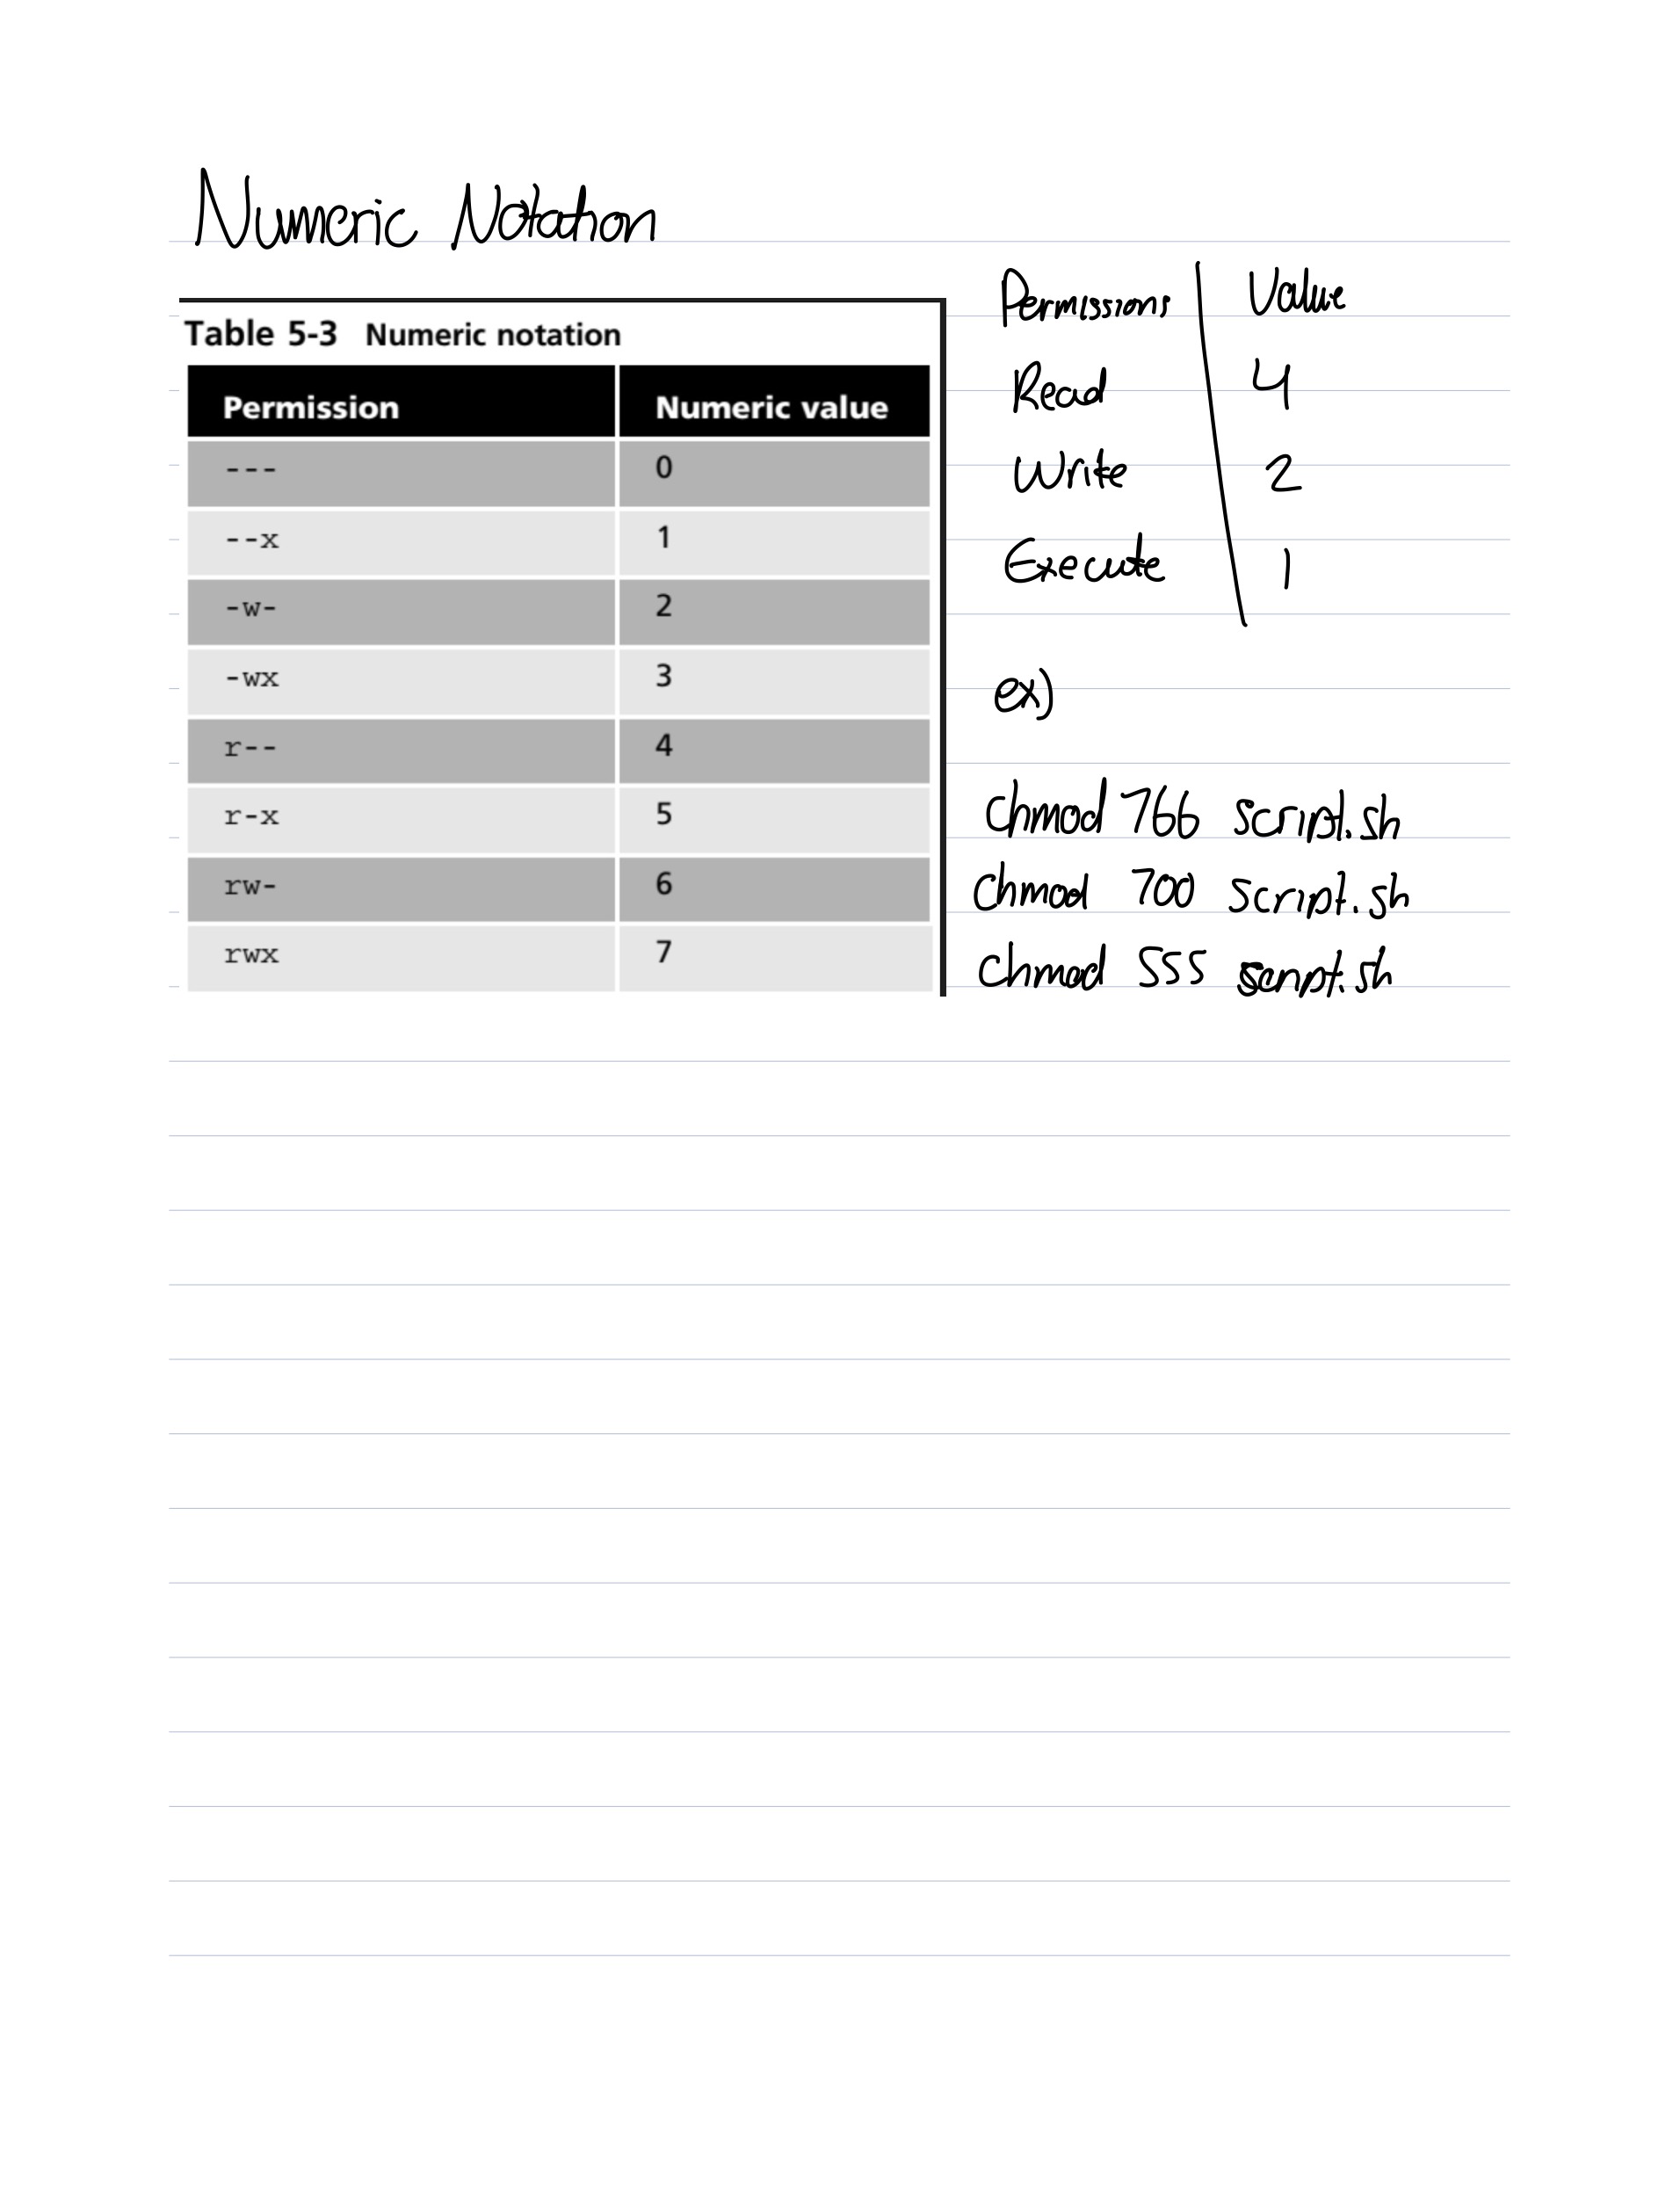 Numeric Notation
Table 5-3 Numeric notation
Permission Numeric value
--- 0
--x 1
-w- 2
-wx 3
r-- 4
r-x 5
rw- 6
rwx 7
Permissions Value
Read 4
Write 2
Execute 1
ex)
chmod 766 script.sh
chmod 700 script.sh
chmod 555 script.sh